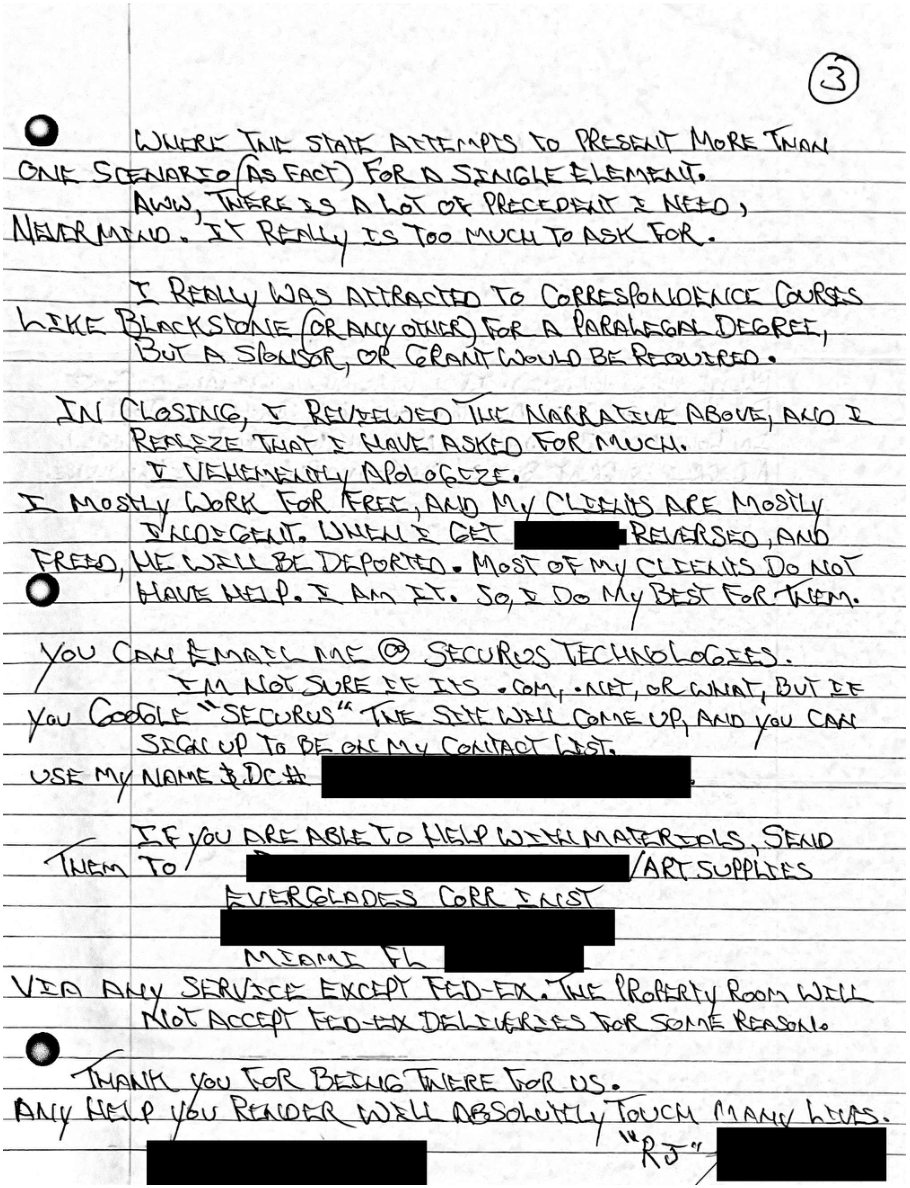 3
WHERE THE STATE ATTEMPTS TO PRESENT MORE THAN
ONE SCENARIO (AS FACT) FOR A SINGLE ELEMENT.
AWW, THERE IS A LOT OF PRECEDENT I NEED,
NEVERMIND. IT REALLY IS TOO MUCH TO ASK FOR.
I REALLY WAS ATTRACTED TO CORRESPONDENCE COURSES
LIKE BLACKSTONE (OR ANY OTHER) FOR A PARALEGAL DEGREE,
BUT A SPONSOR, OR GRANT WOULD BE REQUIRED.
IN CLOSING, I REVIEWED THE NARRATIVE ABOVE, AND I
REALIZE THAT I HAVE ASKED FOR MUCH.
I VEHEMENTLY APOLOGIZE.
I MOSTLY WORK FOR FREE, AND MY CLIENTS ARE MOSTLY
INDIGENT. WHEN I GET REVERSED, AND
FREED, HE WILL BE DEPORTED. MOST OF MY CLIENTS DO NOT
HAVE HELP. I AM IT. SO, I DO MY BEST FOR THEM.
YOU CAN EMAIL ME @ SECURUS TECHNOLOGIES.
I'M NOT SURE IF ITS .COM, .NET, OR WHAT, BUT IF
YOU GOOGLE "SECURUS" THE SITE WILL COME UP, AND YOU CAN
SIGN UP TO BE ON MY CONTACT LIST.
USE MY NAME & DC# .
IF YOU ARE ABLE TO HELP WITH MATERIALS, SEND
THEM TO /ART SUPPLIES
EVERGLADES CORR INST
MIAMI FL
VIA ANY SERVICE EXCEPT FED-EX. THE PROPERTY ROOM WILL
NOT ACCEPT FED-EX DELIVERIES FOR SOME REASON.
THANK YOU FOR BEING THERE FOR US.
ANY HELP YOU RENDER WILL ABSOLUTLY TOUCH MANY LIVES.
"RJ"